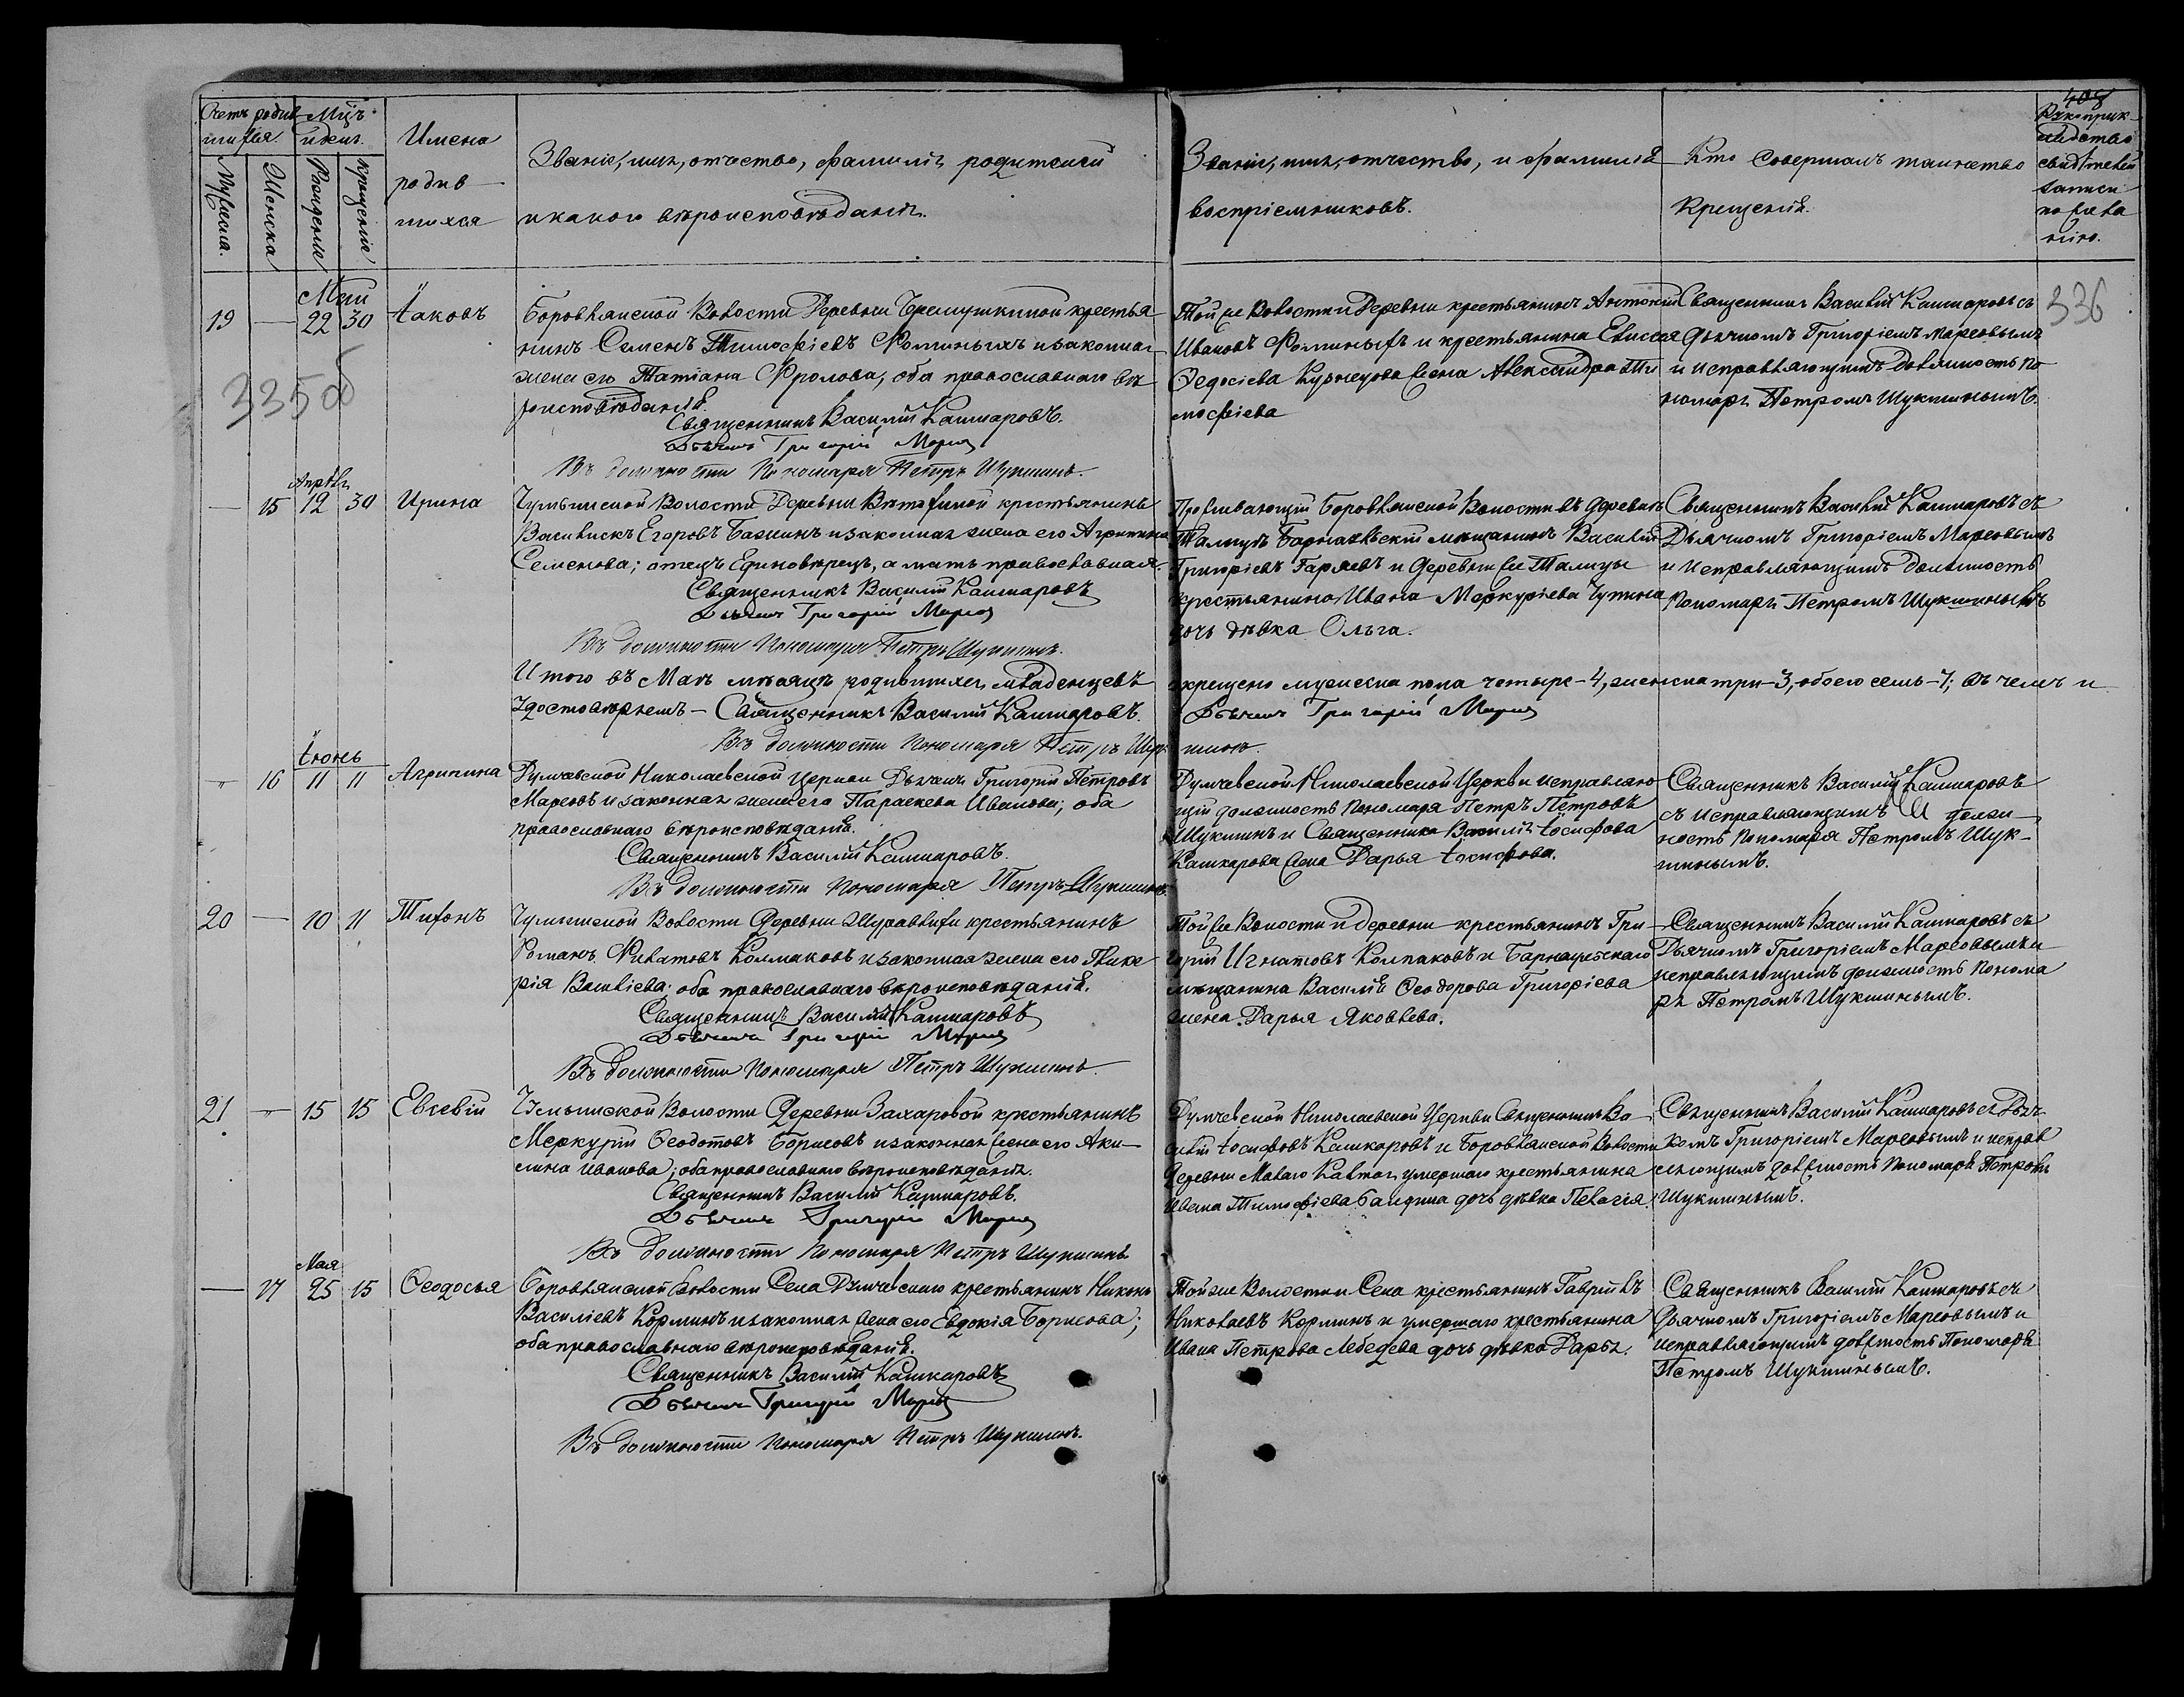 408
Счетъ родив-
шихся.
Мцъ
и день.
Мужеска.
Женска
Рожденіе
Крещеніе
Имена
родив-
шихся
Званіе, имя, отчество, фамилія родителей
и какого вѣроисповѣданія.
Званіе, имя, отчество, и фамилія
воспріемниковъ.
Кто совершалъ таинство
Крещенія.
Рукоприк-
ладство
свидѣтелей
записи
по жела-
нію.
336
335 об
Май
19 — 22 30 Іаковъ
Боровлянской Волости Деревни Черемушкиной крестья-
нинъ Семенъ Тимофіевъ Фоминыхъ и законная
жена его Татіана Фролова, оба православнаго вѣ-
роисповѣданія.
Священникъ Василій Кашкаровъ.
Дьячекъ Григорій Марсов
Въ должности Пономаря Петръ Шукшинъ.
Той же Волости и Деревни крестьянинъ Антоній
Ивановъ Фоминыхъ и крестьянина Елисея
Федосіева Кузнецова жена Александра Ти-
мофіева
Священникъ Василій Кашкаровъ съ
Дьячкомъ Григоріемъ Марсовымъ
и исправляющимъ должность По-
номаря Петромъ Шукшинымъ.
Апрѣля
— 15 12 30 Ирина
Чумышской Волости Деревни крестьянинъ
Василискъ Егоровъ Бажинъ и законная жена его Агрипина
Семенова; отецъ Единовѣрецъ, а мать православная.
Священникъ Василій Кашкаровъ
Дьячекъ Григорій Марсов
Въ должности Пономаря Петръ Шукшинъ.
Проживающій Боровлянской Волости въ деревнѣ
Талицѣ Барнаульскій мѣщанинъ Василій
Григоріевъ Гаряевъ и Деревни же Талицы
крестьянина Ивана Меркуріева Чупина
дочь дѣвка Ольга.
Священникъ Василій Кашкаровъ съ
Дьячкомъ Григоріемъ Марсовымъ
и исправляющимъ должность
Пономаря Петромъ Шукшинымъ
Итого въ Маѣ мѣсяцѣ родившихся младенцевъ
крещено мужеска пола четыре–4, женска три–3, обоего семь–7; въ чемъ и
удостовѣряемъ – Священникъ Василій Кашкаровъ.
Дьячекъ Григорій Марсов
Въ должности Пономаря Петръ Шукшинъ.
Іюнь
„ 16 11 11 Агрипина
Думчевской Николаевской церкви Дьячекъ Григорій Петровъ
Марсовъ и законная жена его Параскева Иванова; оба
православнаго вѣроисповѣданія.
Священникъ Василій Кашкаровъ.
Въ должности Пономаря Петръ Шукшинъ.
Думчевской Николаевской Церкви исправляю-
щій должность Пономаря Петръ Петровъ
Шукшинъ и Священника Василія Іосифова
Кашкарова жена Дарья Іосифова.
Священникъ Василій Кашкаровъ
съ исправляющимъ долж-
ность Пономаря Петромъ Шук-
шинымъ.
20 — 10 11 Тихонъ
Чумышской Волости Деревни Журавлихи крестьянинъ
Романъ Филатовъ Колмаковъ и законная жена его Глике-
рія Василіева: оба православнаго вѣроисповѣданія.
Священникъ Василій Кашкаровъ
Дьячекъ Григорій Марсов
Въ должности Пономаря Петръ Шукшинъ
Той же Волости и деревни крестьянинъ Гри-
горій Игнатовъ Колпаковъ и Барнаульскаго
мѣщанина Василія Феодорова Григоріева
жена Дарья Яковлева.
Священникъ Василій Кашкаровъ съ
Дьячкомъ Григоріемъ Марсовымъ и
исправляющимъ должность Понома-
ря Петромъ Шукшинымъ.
21 — 15 15 Евсевій
Чумышской Волости Деревни Захаровой крестьянинъ
Меркурій Феодотовъ Борисовъ и законная жена его Аки-
лина Иванова; оба православнаго вѣроисповѣданія.
Священникъ Василій Кашкаровъ.
Дьячекъ Григорій Марсов
Въ должности Пономаря Петръ Шукшинъ
Думчевской Николаевской Церкви Священникъ Ва-
силій Іосифовъ Кашкаровъ и Боровлянской Волости
Деревни Малаго Калтая умершаго крестьянина
Ивана Тимофіева дочь дѣвка Пелагія.
Священникъ Василій Кашкаровъ съ Дьяч-
комъ Григоріемъ Марсовымъ и исправ-
ляющимъ должность Пономаря Петромъ
Шукшинымъ.
Мая
— 17 25 15 Феодосья
Боровлянской Волости Села Думчевскаго крестьянинъ Никонъ
Василіевъ Корминъ и законная жена его Евдокія Борисова;
оба православнаго вѣроисповѣданія.
Священникъ Василій Кашкаровъ
Дьячекъ Григорій Марсов
Въ должности Пономаря Петръ Шукшинъ.
Той же Волости и Села крестьянинъ Гавріилъ
Николаевъ Корминъ и умершаго крестьянина
Ивана Петрова Лебедева дочь дѣвка Дарья.
Священникъ Василій Кашкаровъ съ
Дьячкомъ Григоріемъ Марсовымъ и
исправляющимъ должность Пономаря
Петромъ Шукшинымъ.